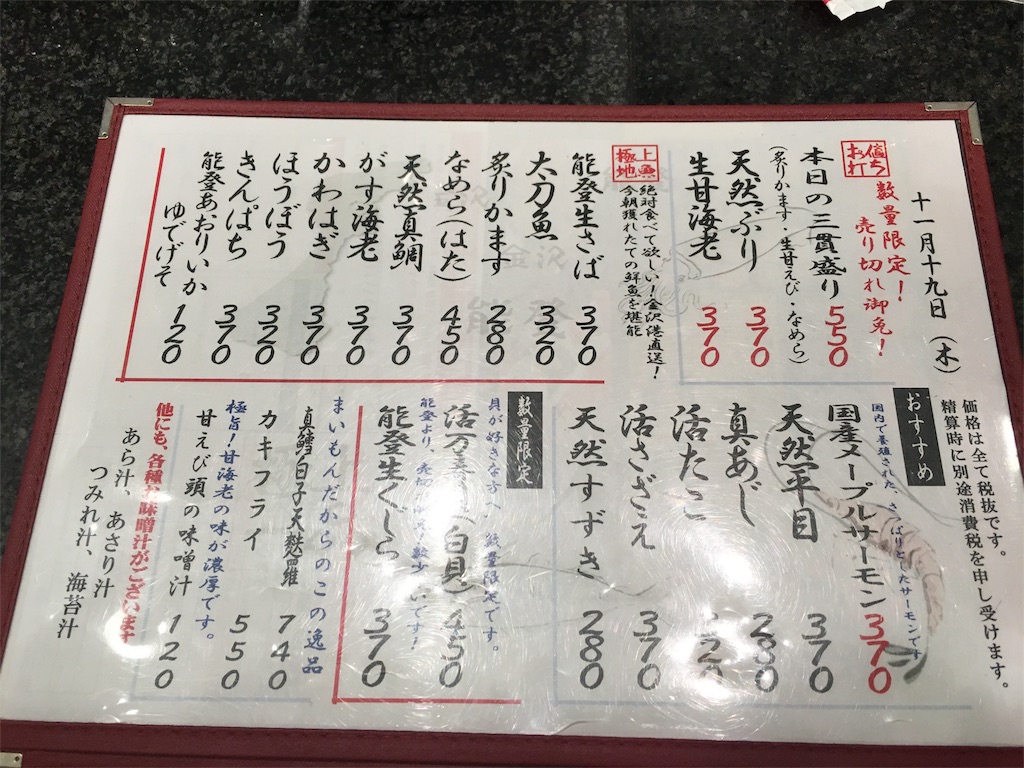 十一月十九日(木)
価格は全て税抜です。
精算時に別途消費税を申し受けます。
値打ち
数量限定!
売り切れ御免!
本日の三貫盛り 550
(炙りかます・生甘えび・なめら)
天然ぶり 370
生甘海老 370
上魚
極地
絶対食べて欲しい!金沢港直送!
今朝獲れたての鮮魚を堪能
能登生さば 370
太刀魚 320
炙りかます 280
なめら(はた) 450
天然真鯛 370
がす海老 370
かわはぎ 370
ほうぼう 320
きんぱち 370
能登あおりいか
ゆでげそ 120
おすすめ
国産メープルサーモン 370
国内で養殖された、さっぱりとしたサーモンです
天然平目 370
真あじ 280
活たこ
活さざえ 370
天然すずき 280
数量限定
貝が好きな方へ 数量限定です。
活万 (白貝) 450
能登より、
能登生ぐじら 370
まいもんだからのこの逸品
真鱈白子天麩羅 740
カキフライ 550
極旨!甘海老の味が濃厚です。
甘えび頭の味噌汁 120
他にも、各種 味噌汁がございます
あら汁、あさり汁
つみれ汁、海苔汁